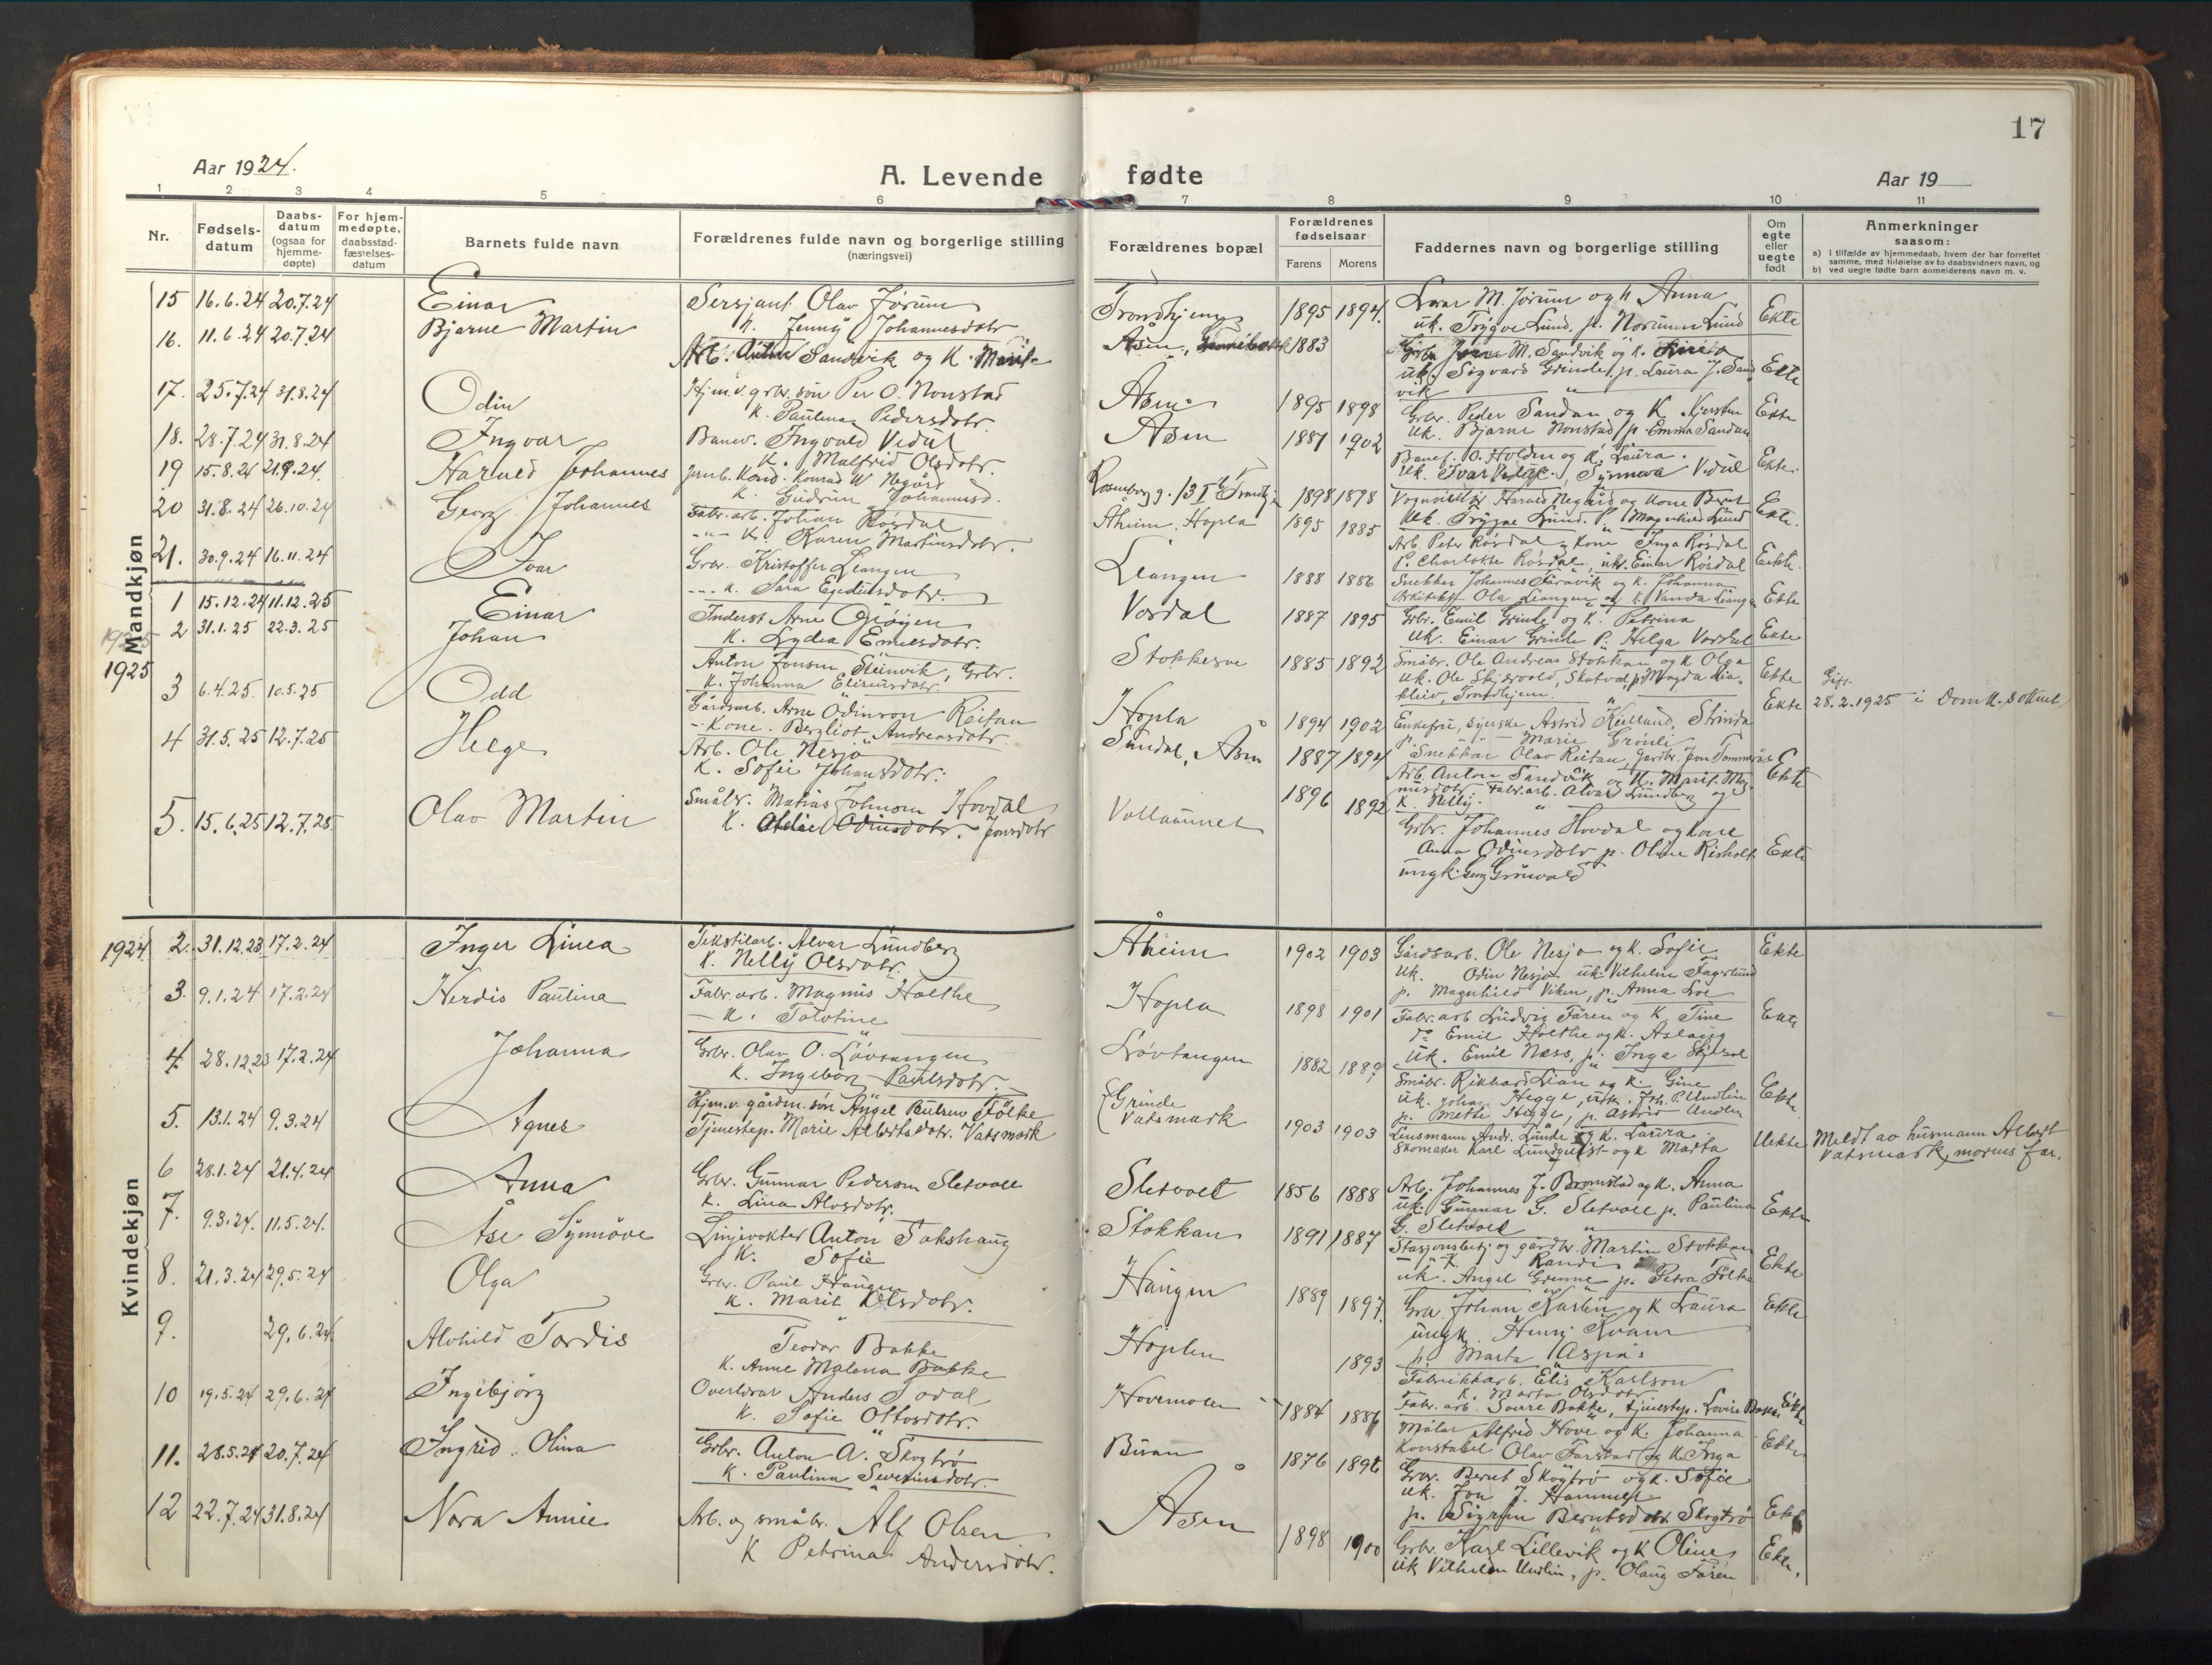 17
Aar 1924.
A. Levende fødte
Aar 19
1 2 3 4 5 6 7 8 9 10 11
Nr.
Fødsels-
datum
Daabs-
datum
(ogsaa for
hjemme-
døpte)
For hjem-
medøpte,
daabsstad-
fæstelses-
datum
Barnets fulde navn
Forældrenes fulde navn og borgerlige stilling
(næringsvei)
Forældrenes bopæl
Forældrenes
fødselsaar
Farens Morens
Faddernes navn og borgerlige stilling
Om
egte
eller
uegte
født
Anmerkninger
saasom:
a) I tilfælde av hjemmedaab, hvem der har forrettet
samme, med tilføielse av to daabsvidners navn, og
b) ved uegte fødte barn anmelderens navn m. v.
Mandkjøn
15 16.6.24 20.7.24 Einar
Sersjant Olav Jørum
K. Jenny Johannesdotr
Trondhjem 1895 1894.
M. Jørum og K. Anna
uk. Trygve Lund. p. Lund
Ekte
16. 11.6.24 20.7.24 Bjarne Martin
Arb. Sandvik og K. Marit
Åsen, 1883
M. Sandvik og K.
uk. Sigvard Grinde, p. Laura J. Sand
vik
Ekte
17. 25.7.24 31.8.24 Odin
Hjem.v. grbr. søn Per O. Nonstad
K. Paulina Pedersdotr.
Åsen 1895 1898
Grbr. Peder Sandan og K. Kjersten
Uk. Bjarne Nonstad p. Emma Sandan
Ekte
18. 28.7.24 31.8.24 Ingvar
Banev. Ingvald Vedul
K. Malfrid Olsdotr.
Åsen 1887 1902
O. Holden og K. Laura.
uk. Ivar Vedul, Synnøva Vedul
Ekte.
19 15.8.24 21.9.24. Harald Johannes
Jernb. Kond. Konrad W Negård
K. Gudrun Johannesd.
Rosenborg g. 13 1898 1898
Harald Negård og Kone Berit
Uk. Trygve Lund. P. Magnhild Lund
Ekte.
20 31.8.24 26.10.24 Georg Johannes
Fabr. arb. Johan Røsdal
-"- K. Karen Martinsdotr.
Åheim, Hopla 1895 1885
Arb. Peter Røsdal og Kone Inga Røsdal
P. Charlotte Røsdal, uk. Einar Røsdal
Ekte.
21. 30.9.24 16.11.24 Ivar
Grbr. Kristoffer Leangen
K. Sara Egediusdotr.
Leangen 1888 1886
Snekker Johannes Faravik og K. Johanna
Arkitekt Ola Leangen og K. Vanda Leangen
Ekte
1925
1 15.12.24 11.12.25 Einar
Inderst Arne Grøgen
K. Lydia Ernesdotr.
Vordal 1887 1895
Grbr. Emil Grinde og K. Petrina
Uk. Einar Grinde P. Helga Vordal
Ekte
1925
2 31.1.25 22.3.25 Johan
Anton Jonsen Steinvik, Grbr.
K. Johanna Eliseusdotr.
Stokkesve 1885 1892
Småbr. Ole Andreas Stokkan og K Olga
Uk. Ole Skjervold, Skatval, p. Magda Lia-
klev, Trondhjem.
Ekte
3 6.4.25. 10.5.25 Odd
Gårdsarb. Arne Odinson Reitan
Kone. Bergliot Andreasdotr.
Hopla 1894 1902
Enkefru, syerske Astrid Kjelland, Strinda
p. Marie Grønli
Snekker Olav Reitan, Gårdbr. Jon Tommerås
Ekte
Gift
28.2.1925 i Domk. sokn
4 31.5.25 12.7.25 Helge
Arb. Ole Nesjø
K. Sofie Johansdotr.
Sandal, Åsen 1887 1894
Arb. Anton Sandvik og K. Marit Mag-
nusdotr. Fabr. arb. Alvar Lundberg og
K. Nelly.
Ekte
5. 15.6.25 12.7.25 Olav Martin
Småbr. Matias Johnsen Hovdal
K. Odinsdotr. Jonsdotr
1896 1892
Grbr. Johannes Hovdal og Kone
Anna Odinsdotr p. Oline Risholt
ungk. Georg Grönvold
Ekte
Kvindekjøn
1924
2. 31.12.23 17.2.24 Inger Linea
Tekstilarb. Alvar Lundberg
K. Nelly Olsdotr.
Åheim 1902 1903
Gårdsarb. Ole Nesjø og K. Sofie
Uk. Odin Nesjø uk. Vilhelm Fagerlund
p. Magnhild Viken, p. Anna Loe
Ekte
3. 9.1.24 17.2.24 Herdis Paulina
Fabr. arb. Magnus Holthe
K. Tolotine
Hopla 1898 1901
Fabr. arb Ludvig Faren og K. Tine
do Emil Holthe og K. Aslaug
uk. Emil Næss, p. Inga
Ekte
4 28.12.23 17.2.24 Johanna
Grbr. Olav O. Løvtangen
K. Ingebørg Paulsdotr.
Løvtangen 1882 1889
Småbr. Rikhard Lian og K. Gine
uk. Johan Hegge, uk. Joh. P. Undlin
p. Mette Hegge, p. Astrid Undlin
Ekte
5. 13.1.24 9.3.24 Agnes
Hjem.v. gårdm. søn Angel Paulsen Følke
Tjenestep. Marie Albertsdotr. Vatsmark
Grinde
Vatsmark
1903 1903
Lensmann Andr. Lunde og K. Laura.
Skomaker Karl Lundquist og K Marta
Uekte
Meldt av husmann Albert
Vatsmark, morens far.
6 28.1.24 21.4.24 Anna
Grbr. Gunnar Pedersen Sletvold
K. Lina Alvsdotr.
Sletvold 1856 1888
Arb. Johannes J. Bromstad og K. Anna
uk. Gunnar G. Sletvold p. Paulina
G. Sletvold
Ekte
7. 9.3.24. 11.5.24. Åse Synnöve
Linjevokter Anton Sakshaug
K. Sofie
Stokkan 1891 1887
Stasjonsbetj. og gårdbr. Martin Stokkan
K. Randi
uk. Angel Grenne p. Petra Følke
Ekte
8. 21.3.24 29.5.24 Olga
Grbr. Paul Haugen
K. Marit
Haugen 1889 1897
Johan Karlsen og K Laura
ungk. Henry Kvam
p. Marta Aspås
Ekte
9. 29.6.24 Alvhild Tordis
Teodor Bakke
K. Anne Malena Bakke
Hoplen 1893
Fabrikkarb. Elis Karlson
K. Marta Olsdotr
Fabr. arb. Sverre Bakke, tjenestep. Lovise Bakke
Ekte
10 19.5.24 29.6.24 Ingebjörg
Overlærar Anders Todal
K. Sofie Ottosdotr.
Hovemoen 1884 1886
Målar Alfred Hove og K. Johanna
Konstabel Olav Farstad og K. Inga
Ekte
11. 28.5.24 20.7.24 Ingrid Olina
Grbr. Anton A. Skogtrø
K. Paulina Sivertinsdotr.
Buan 1876
Grbr. Bernt Skogtrø og K. Sofie
uk. Jon J. Hammer
p. Sigrun Berntsdotr. Skogtrø
Ekte
12 22.7.24 31.8.24 Nora Annie
Arb. og småbr. Alf Olsen
K Petrina Andersdotr.
Åsen 1898 1900
Grbr. Karl Lillevik og K Oline
uk Vilhelm Undlin, p. Olaug Faren
Ekte.